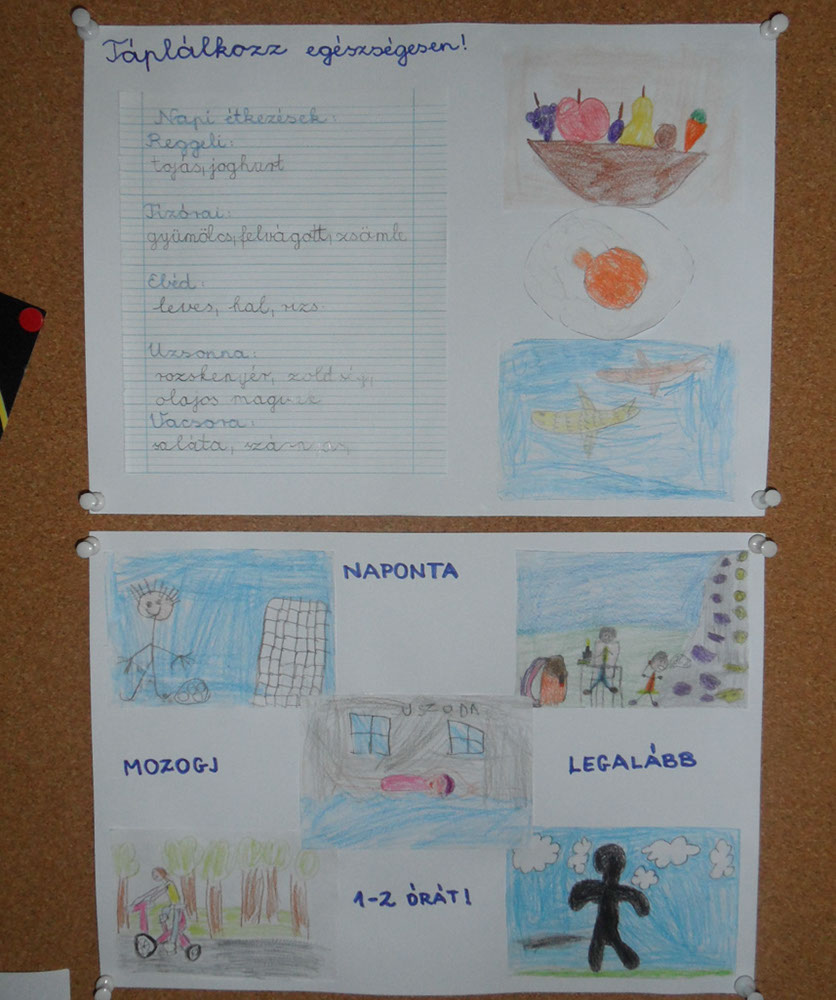 Táplálkozz egészségesen!
Napi étkezések:
Reggeli:
tojás, joghurt
Tízórai:
gyümölcs, felvágott, zsömle
Ebéd:
leves, hal, rizs.
Uzsonna:
rozskenyér, zöldség,
olajos magvak
Vacsora:
saláta, szárnyas,
NAPONTA
USZODA
MOZOGJ
LEGALÁBB
1-2 ÓRÁT!